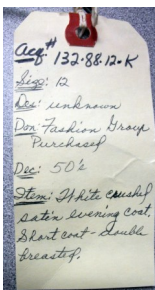 Acq# 132.88.12-K
Size: 12
Des: unknown
Don: Fashion Group
Purchased
Dec: 50's
Item: White crushed
satin evening coat.
Short coat - double
breasted.